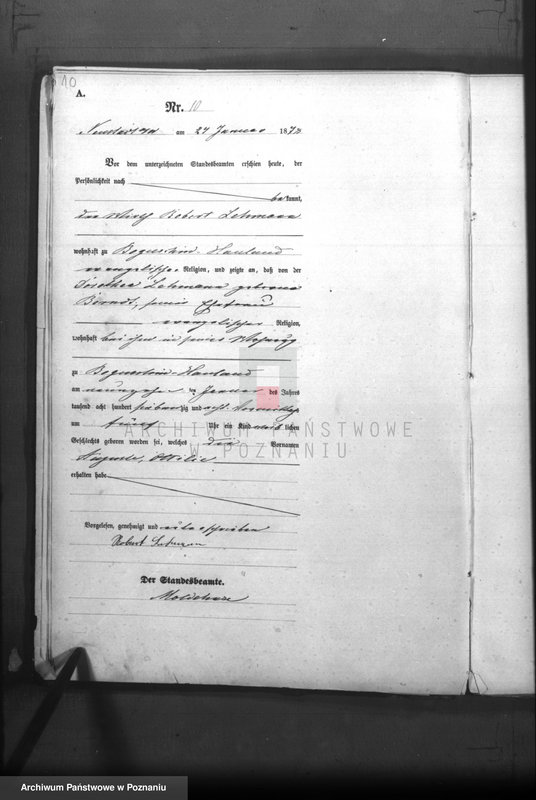 10
A.
Nr. 10
am 24 Januar 1878
Vor dem unterzeichneten Standesbeamten erschien heute, der
Persönlichkeit nach
bekannt,
der Wirth Robert Lehmann
wohnhaft zu Hauland
evangelischer Religion, und zeigte an, daß von der
Lehmann geborene
Berndt, seiner Ehefrau
evangelischer Religion,
wohnhaft bei ihm in seiner Wohnung
zu Hauland
am neunzehn ten Januar des Jahres
tausend acht hundert siebenzig und acht Vormittags
um fünf Uhr ein Kind weiblichen
Geschlechts geboren worden sei, welches die Vornamen
Auguste, Ottilie
erhalten habe
Vorgelesen, genehmigt und unterschrieben
Robert Lehmann
Der Standesbeamte.
ARCHIWUM PAŃSTWOWE
W POZNANIU
Archiwum Państwowe w Poznaniu